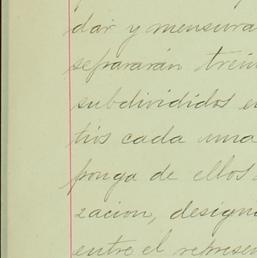 dar y mensura
separarán trein
subdivididos en
tios cada una
ponga de ellos
zacion, design
entre el represen